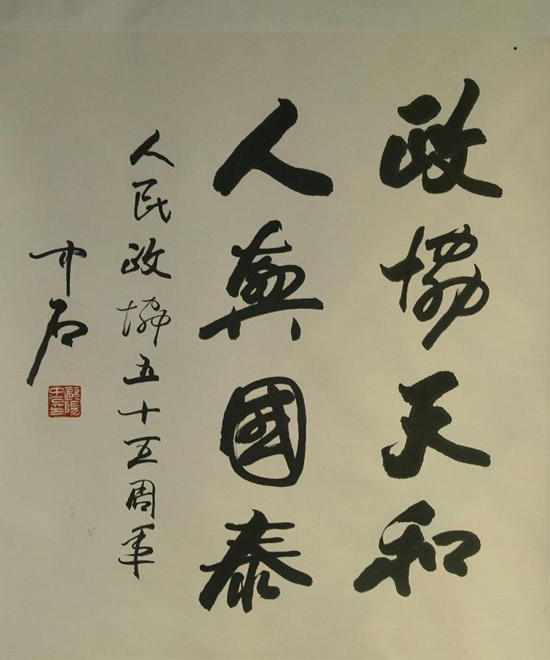 政協天和
人興國泰
人民政協五十五周年
中石
歐陽中石